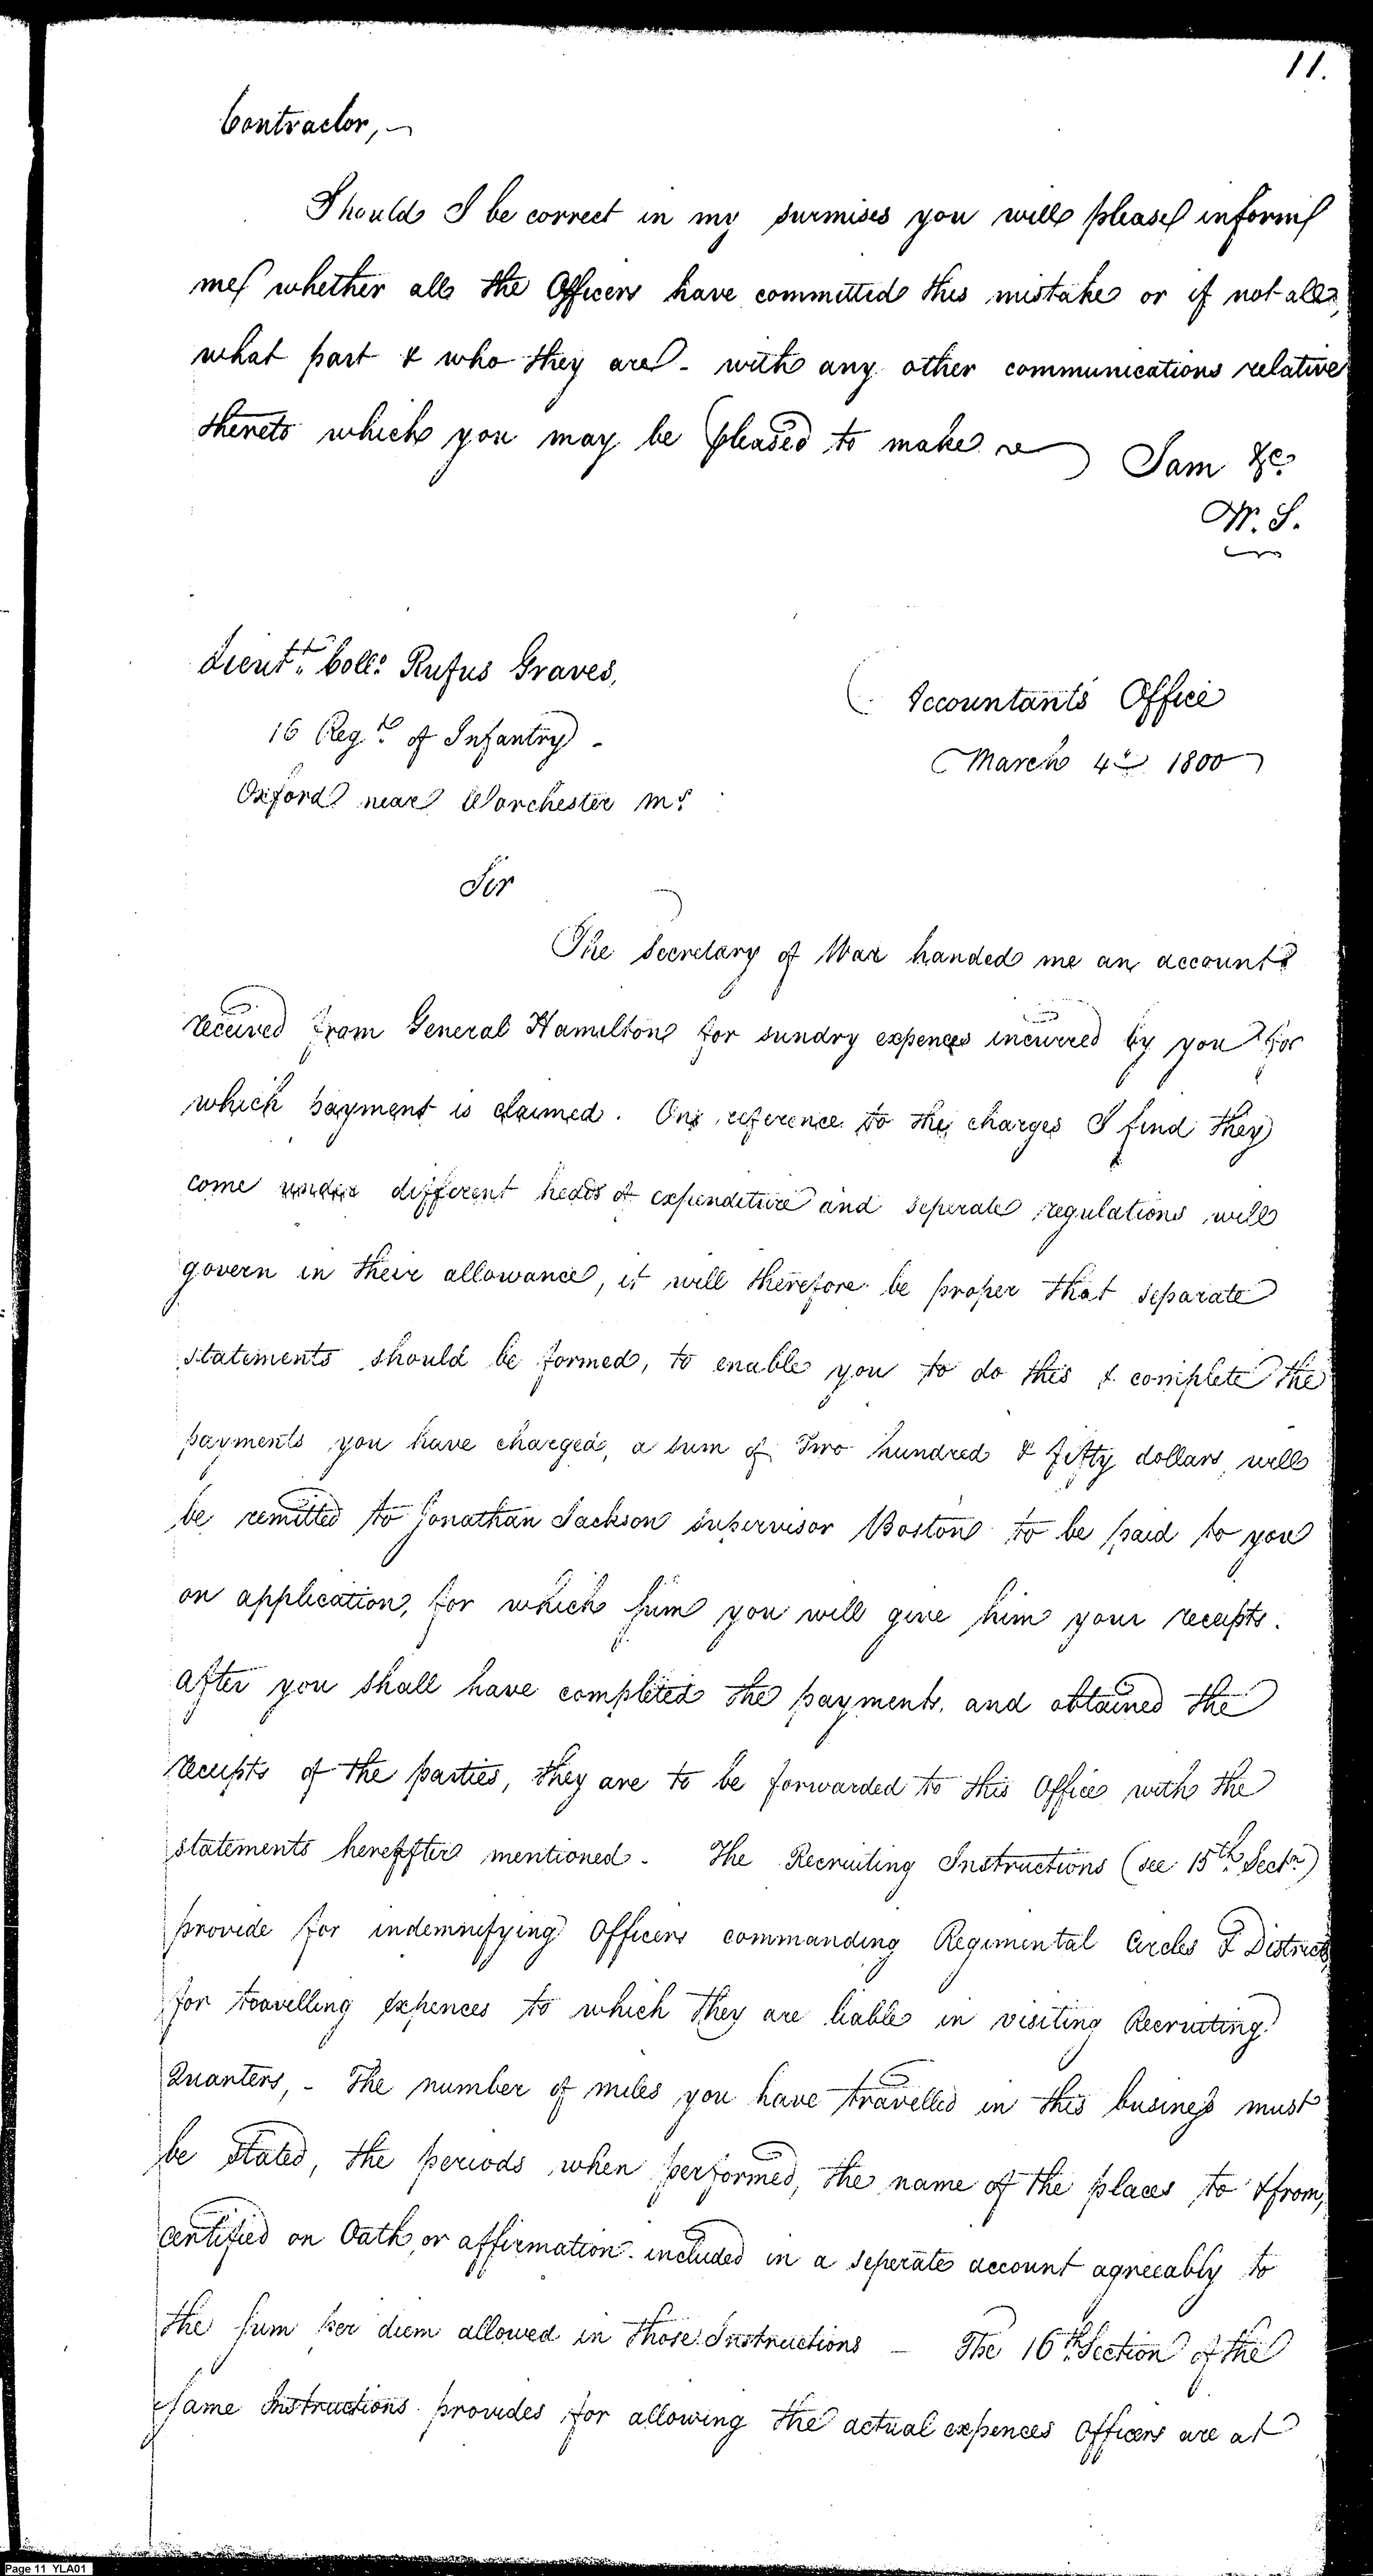 11.
Contractor,
Should I be correct in my surmises you will please inform
me whether all the Officers have committed this mistake or if not all,
what part & who they are - with any other communications relative
thereto which you may be pleased to make
I am &c.
W. S.
Lieut.t Coll.o Rufus Graves,
16 Reg.t of Infantry -
Oxford near Worchester Ms.
Accountants Office
March 4th 1800
Sir
The Secretary of War handed me an account
received from General Hamilton for sundry expences incurred by you for
which payment is claimed. On reference to the charges I find they
come under different heads of expenditure and seperate regulations will
govern in their allowance, it will therefore be proper that separate
statements should be formed, to enable you to do this & complete the
payments you have charged, a sum of Two hundred & fifty dollars will
be remitted to Jonathan Jackson supervisor Boston to be paid to you
on application, for which sum you will give him your receipts.
After you shall have completed the payments, and obtained the
receipts of the parties, they are to be forwarded to this Office with the
statements hereafter mentioned - The Recruiting Instructions (see 15th Sectn)
provide for indemnifying Officers commanding Regimental Circles & Districts
for travelling expences to which they are liable in visiting Recruiting
Quarters, - The number of miles you have travelled in this business must
be stated, the periods when performed, the name of the places to & from,
certified on Oath or affirmation included in a seperate account agreeably to
the sum per diem allowed in those Instructions - The 16th Section of the
same Instructions provides for allowing the actual expences Officers are at
Page 11 YLA01